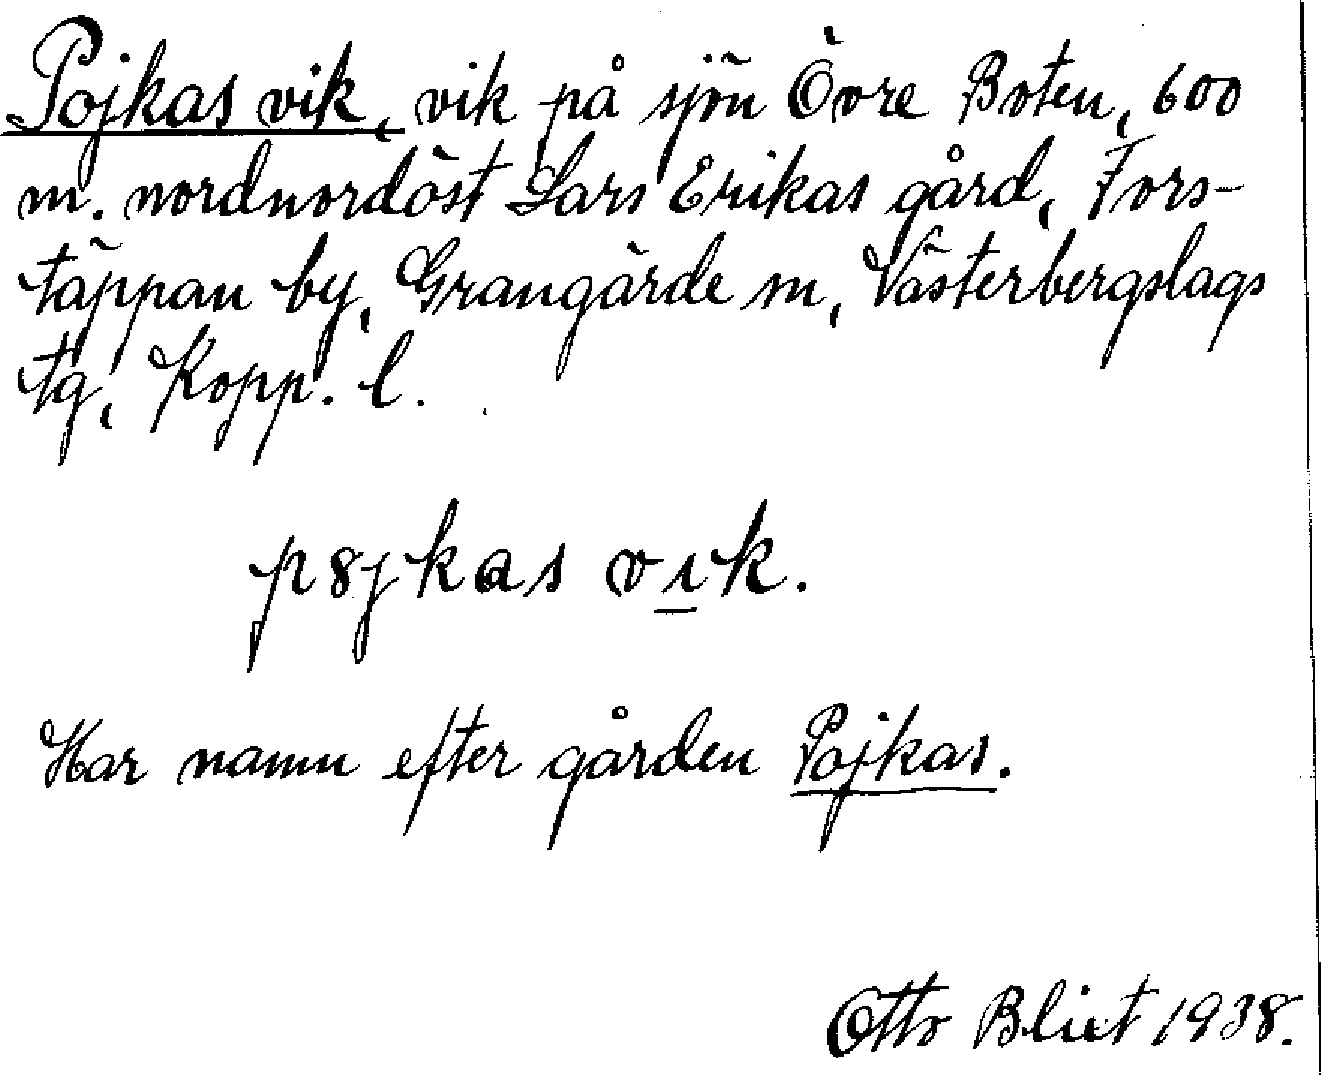 Pojkas vik, vik på sjön Övre Boten, 600
m. nordnordöst Lars Erikas gård, Fors-
täppan by, Grangärde sn, Västerbergslags
tg, Kopp. l.
p8jkas vık.
Har namn efter gården Pojkas.
Otto Blixt 1938.